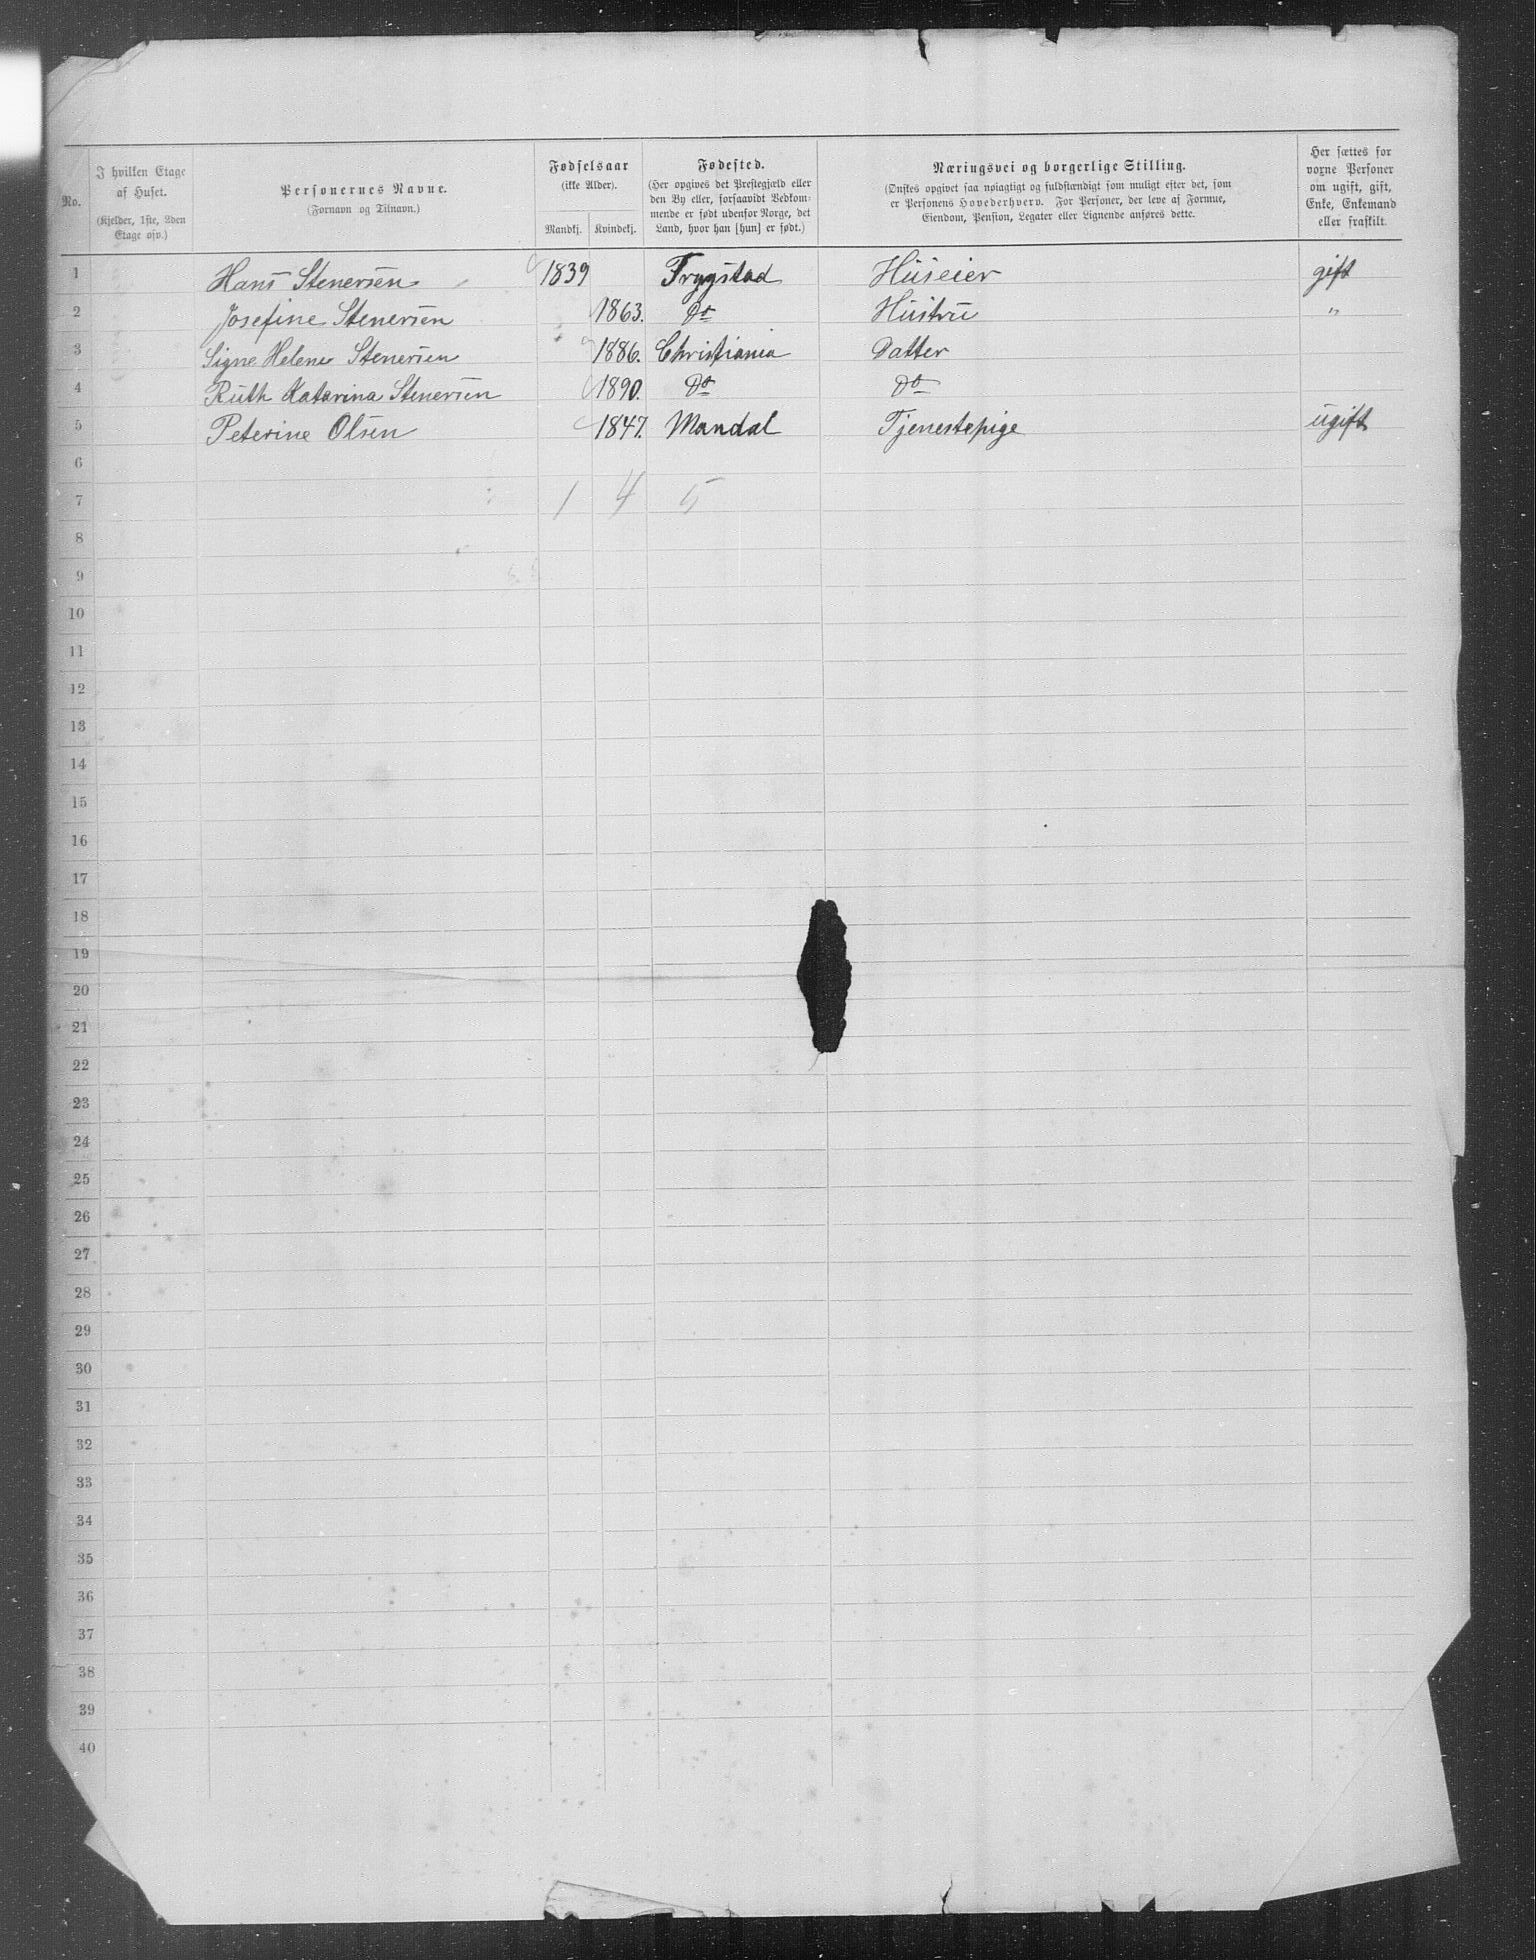 No. | I hvilken Etage af Huset. (Kjelder, 1ste, 2den Etage osv.) | Personernes Navne. (Fornavn og Tilnavn.) | Fødselsaar (ikke Alder). Mandkj. Kvindekj. | Fødested. (Her opgives det Prestegjæld eller den By eller, forsaavidt Vedkommende er født udenfor Norge, det Land, hvor han [hun] er født.) | Næringsvei og borgerlige Stilling. (Ønskes opgivet saa nøiagtigt og fuldstændigt som muligt efter det, som er Personens Hovederhverv. For Personer, der leve af Formue, Eiendom, Pension, Legater eller Lignende anføres dette. | Her sættes for voxne Personer om ugift, gift, Enke, Enkemand eller fraskilt.
1 Hans Stenersen 1839 Trygstad Huseier gift
2 Josefine Stenersen 1863. Do Hustru "
3 Signe Helene Stenersen 1886. Christiania Datter
4 Ruth Katarina Stenersen 1890. Do Do
5 Peterine Olsen 1847. Mandal Tjenestepige ugift
6
7 1 4 5
8
9
10
11
12
13
14
15
16
17
18
19
20
21
22
23
24
25
26
27
28
29
30
31
32
33
34
35
36
37
38
39
40